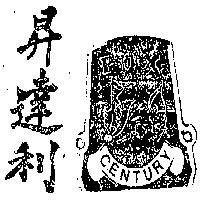 昇達利
CENTURY